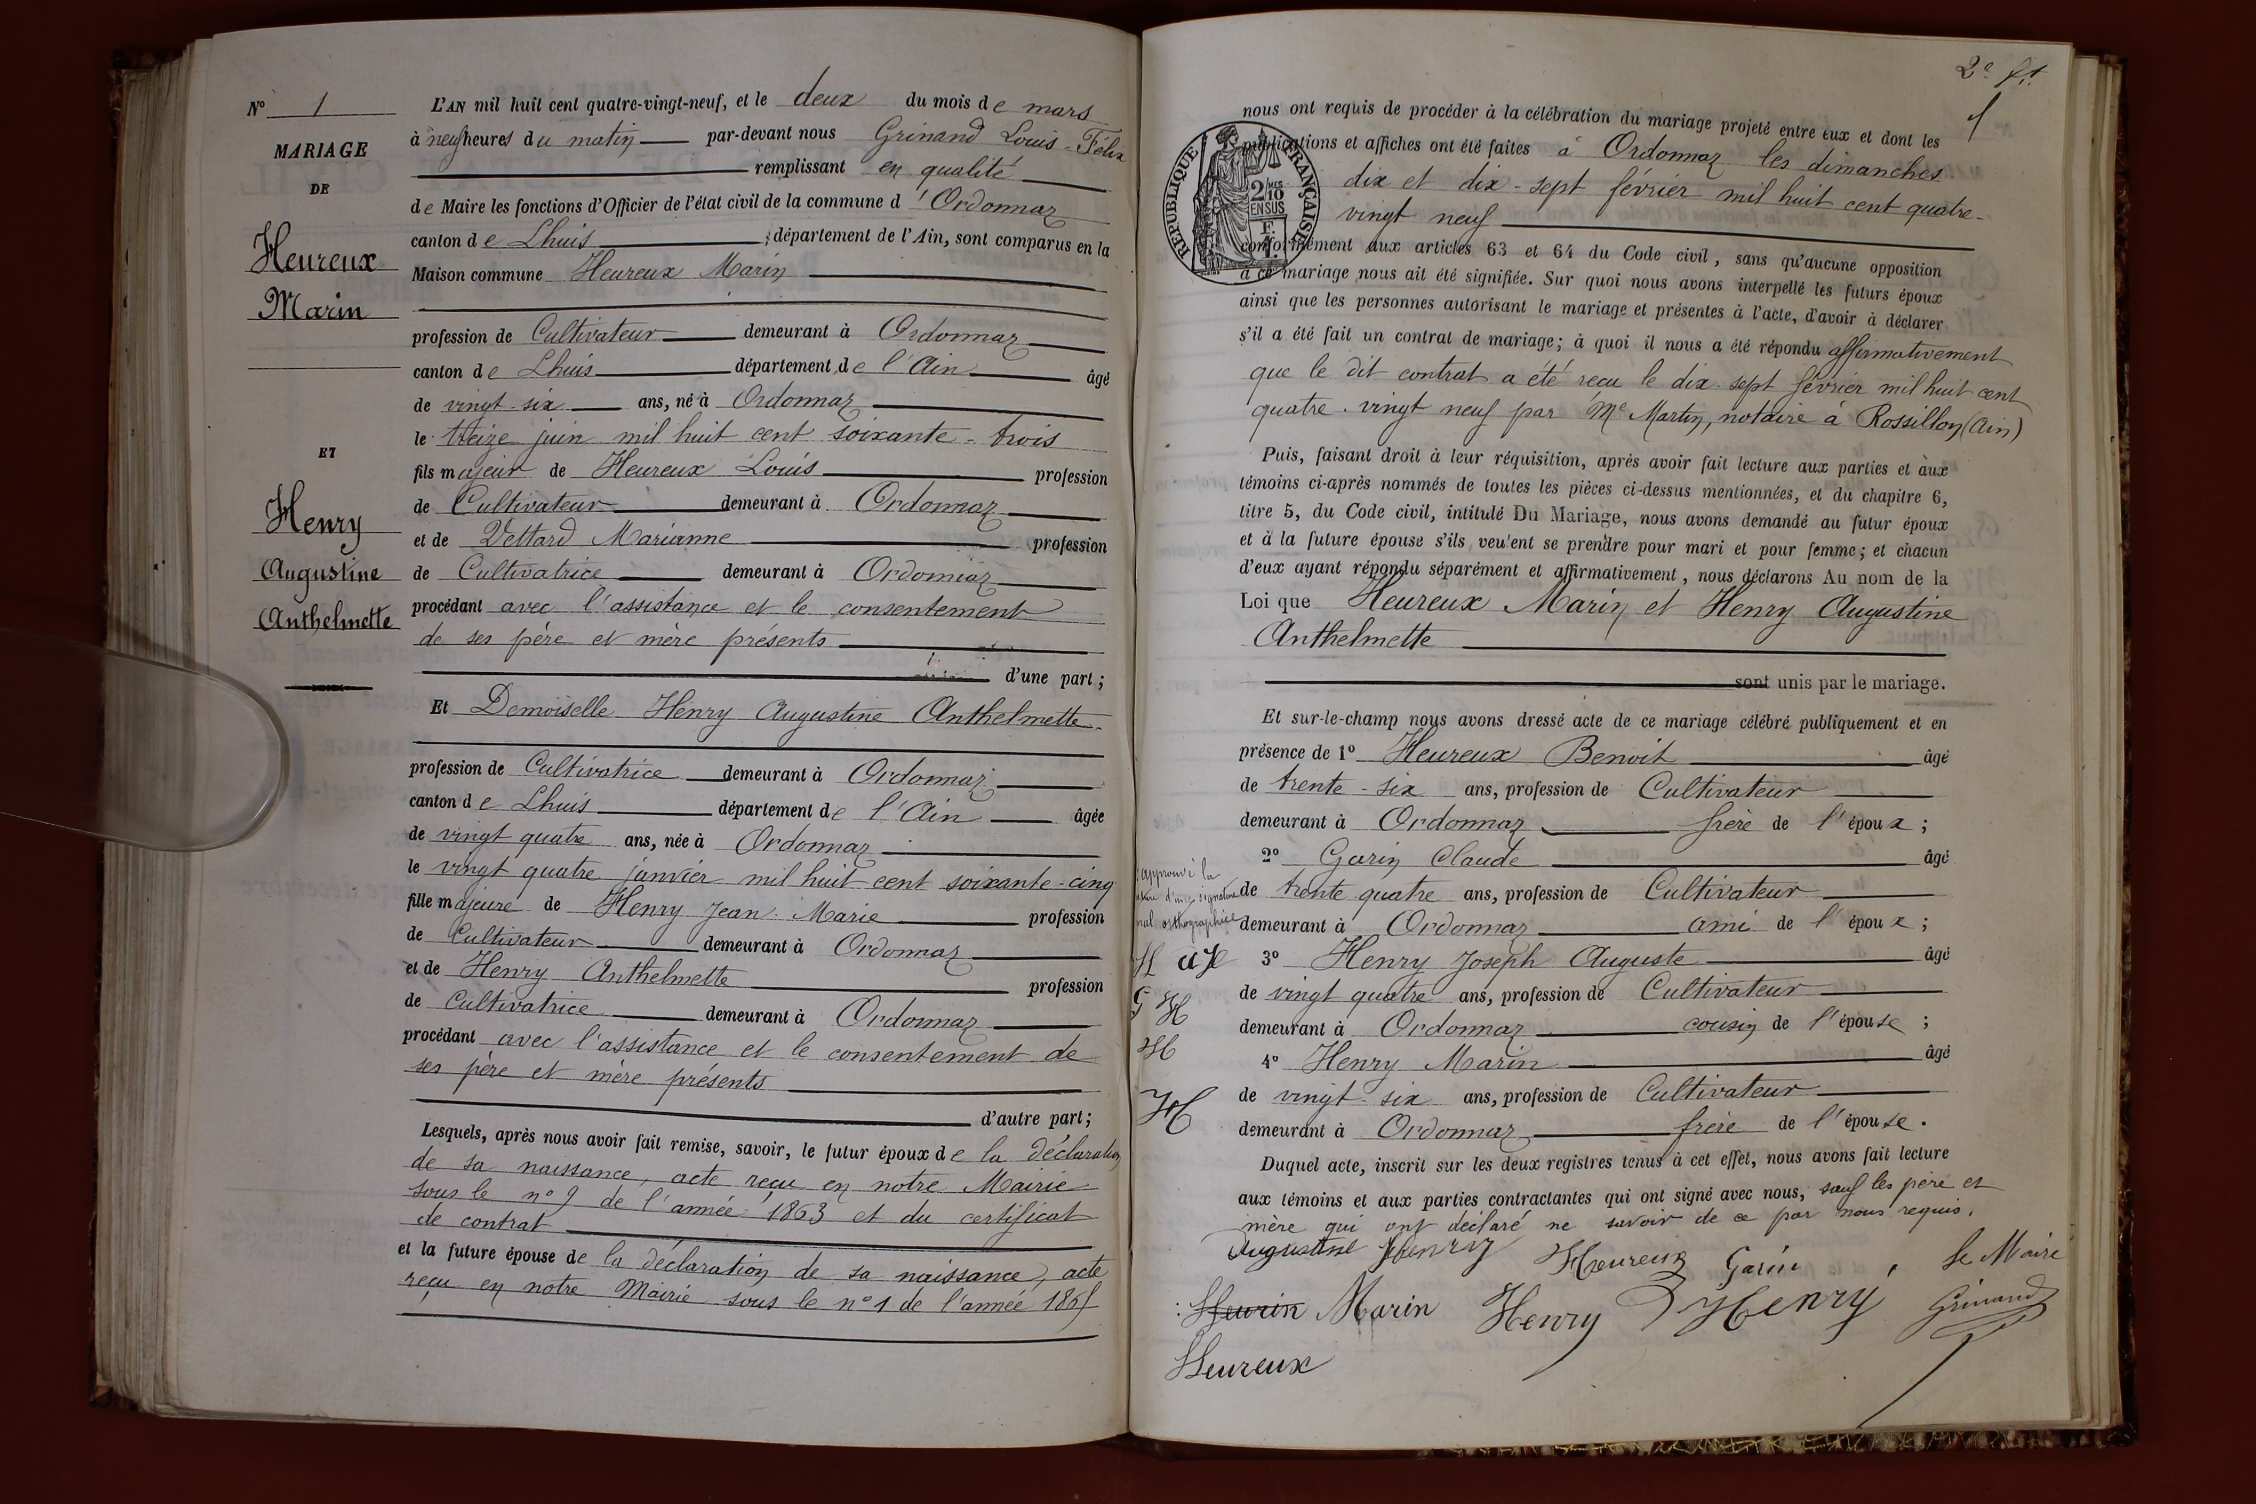 N° 1
MARIAGE
DE
Heureux
Marin
ET
Henry
Augustine
Anthelmette
L'AN mil huit cent quatre-vingt-neuf, et le deux du mois de mars
à neuf heures du matin par-devant nous Grinand Louis-Félix
remplissant en qualité
de Maire les fonctions d'Officier de l'état civil de la commune d'Ordonnaz
canton de Lhuis, département de l'Ain, sont comparus en la
Maison commune Heureux Marin
profession de Cultivateur demeurant à Ordonnaz
canton de Lhuis département de l'Ain âgé
de vingt-six ans, né à Ordonnaz
le treize juin mil huit cent soixante-trois
fils majeur de Heureux Louis profession
de Cultivateur demeurant à Ordonnaz
et de Vettard Marianne profession
de Cultivatrice demeurant à Ordonnaz
procédant avec l'assistance et le consentement
de ses père et mère présents
d'une part;
Et Demoiselle Henry Augustine Anthelmette
profession de Cultivatrice demeurant à Ordonnaz
canton de Lhuis département de l'Ain âgée
de vingt quatre ans, née à Ordonnaz
le vingt quatre janvier mil huit cent soixante-cinq
fille majeure de Henry Jean-Marie profession
de Cultivateur demeurant à Ordonnaz
et de Henry Anthelmette profession
de Cultivatrice demeurant à Ordonnaz
procédant avec l'assistance et le consentement de
ses père et mère présents
d'autre part;
Lesquels, après nous avoir fait remise, savoir, le futur époux de la déclaration
de sa naissance, acte reçu en notre Mairie
sous le n° 9 de l'année 1863 et du certificat
de contrat
et la future épouse de la déclaration de sa naissance, acte
reçu en notre Mairie sous le n° 1 de l'année 1865
2e f.t
nous ont requis de procéder à la célébration du mariage projeté entre eux et dont les
publications et affiches ont été faites à Ordonnaz les dimanches
dix et dix-sept février mil huit cent quatre-
vingt neuf
RÉPUBLIQUE FRANÇAISE
2/10 EN SUS
conformément aux articles 63 et 64 du Code civil, sans qu'aucune opposition
à ce mariage nous ait été signifiée. Sur quoi nous avons interpellé les futurs époux
ainsi que les personnes autorisant le mariage et présentes à l'acte, d'avoir à déclarer
s'il a été fait un contrat de mariage; à quoi il nous a été répondu affermativement
que le dit contrat a été reçu le dix-sept février mil huit cent
quatre-vingt neuf par Me Martin, notaire à Rossillon (Ain)
Puis, faisant droit à leur réquisition, après avoir fait lecture aux parties et aux
témoins ci-après nommés de toutes les pièces ci-dessus mentionnées, et du chapitre 6,
titre 5, du Code civil, intitulé Du Mariage, nous avons demandé au futur époux
et à la future épouse s'ils veulent se prendre pour mari et pour femme; et chacun
d'eux ayant répondu séparément et affirmativement, nous déclarons Au nom de la
Loi que Heureux Marin et Henry Augustine
Anthelmette
sont unis par le mariage.
Et sur-le-champ nous avons dressé acte de ce mariage célébré publiquement et en
présence de 1° Heureux Benoit âgé
de trente-six ans, profession de Cultivateur
demeurant à Ordonnaz frère de l'époux;
2° Garin Claude âgé
de trente quatre ans, profession de Cultivateur
demeurant à Ordonnaz ami de l'époux;
3° Henry Joseph Auguste âgé
de vingt quatre ans, profession de Cultivateur
demeurant à Ordonnaz cousin de l'épouse;
4° Henry Marin âgé
de vingt-six ans, profession de Cultivateur
demeurant à Ordonnaz frère de l'épouse.
approuvé la
d'une signature
mal orthographiée
H AH
G H
H
H
Duquel acte, inscrit sur les deux registres tenus à cet effet, nous avons fait lecture
aux témoins et aux parties contractantes qui ont signé avec nous, sauf les père et
mère qui ont déclaré ne savoir de ce par nous requis.
Augustine Henry Heureux Garin Le Maire
Heurin Marin Henry Henry Grinand
Heureux